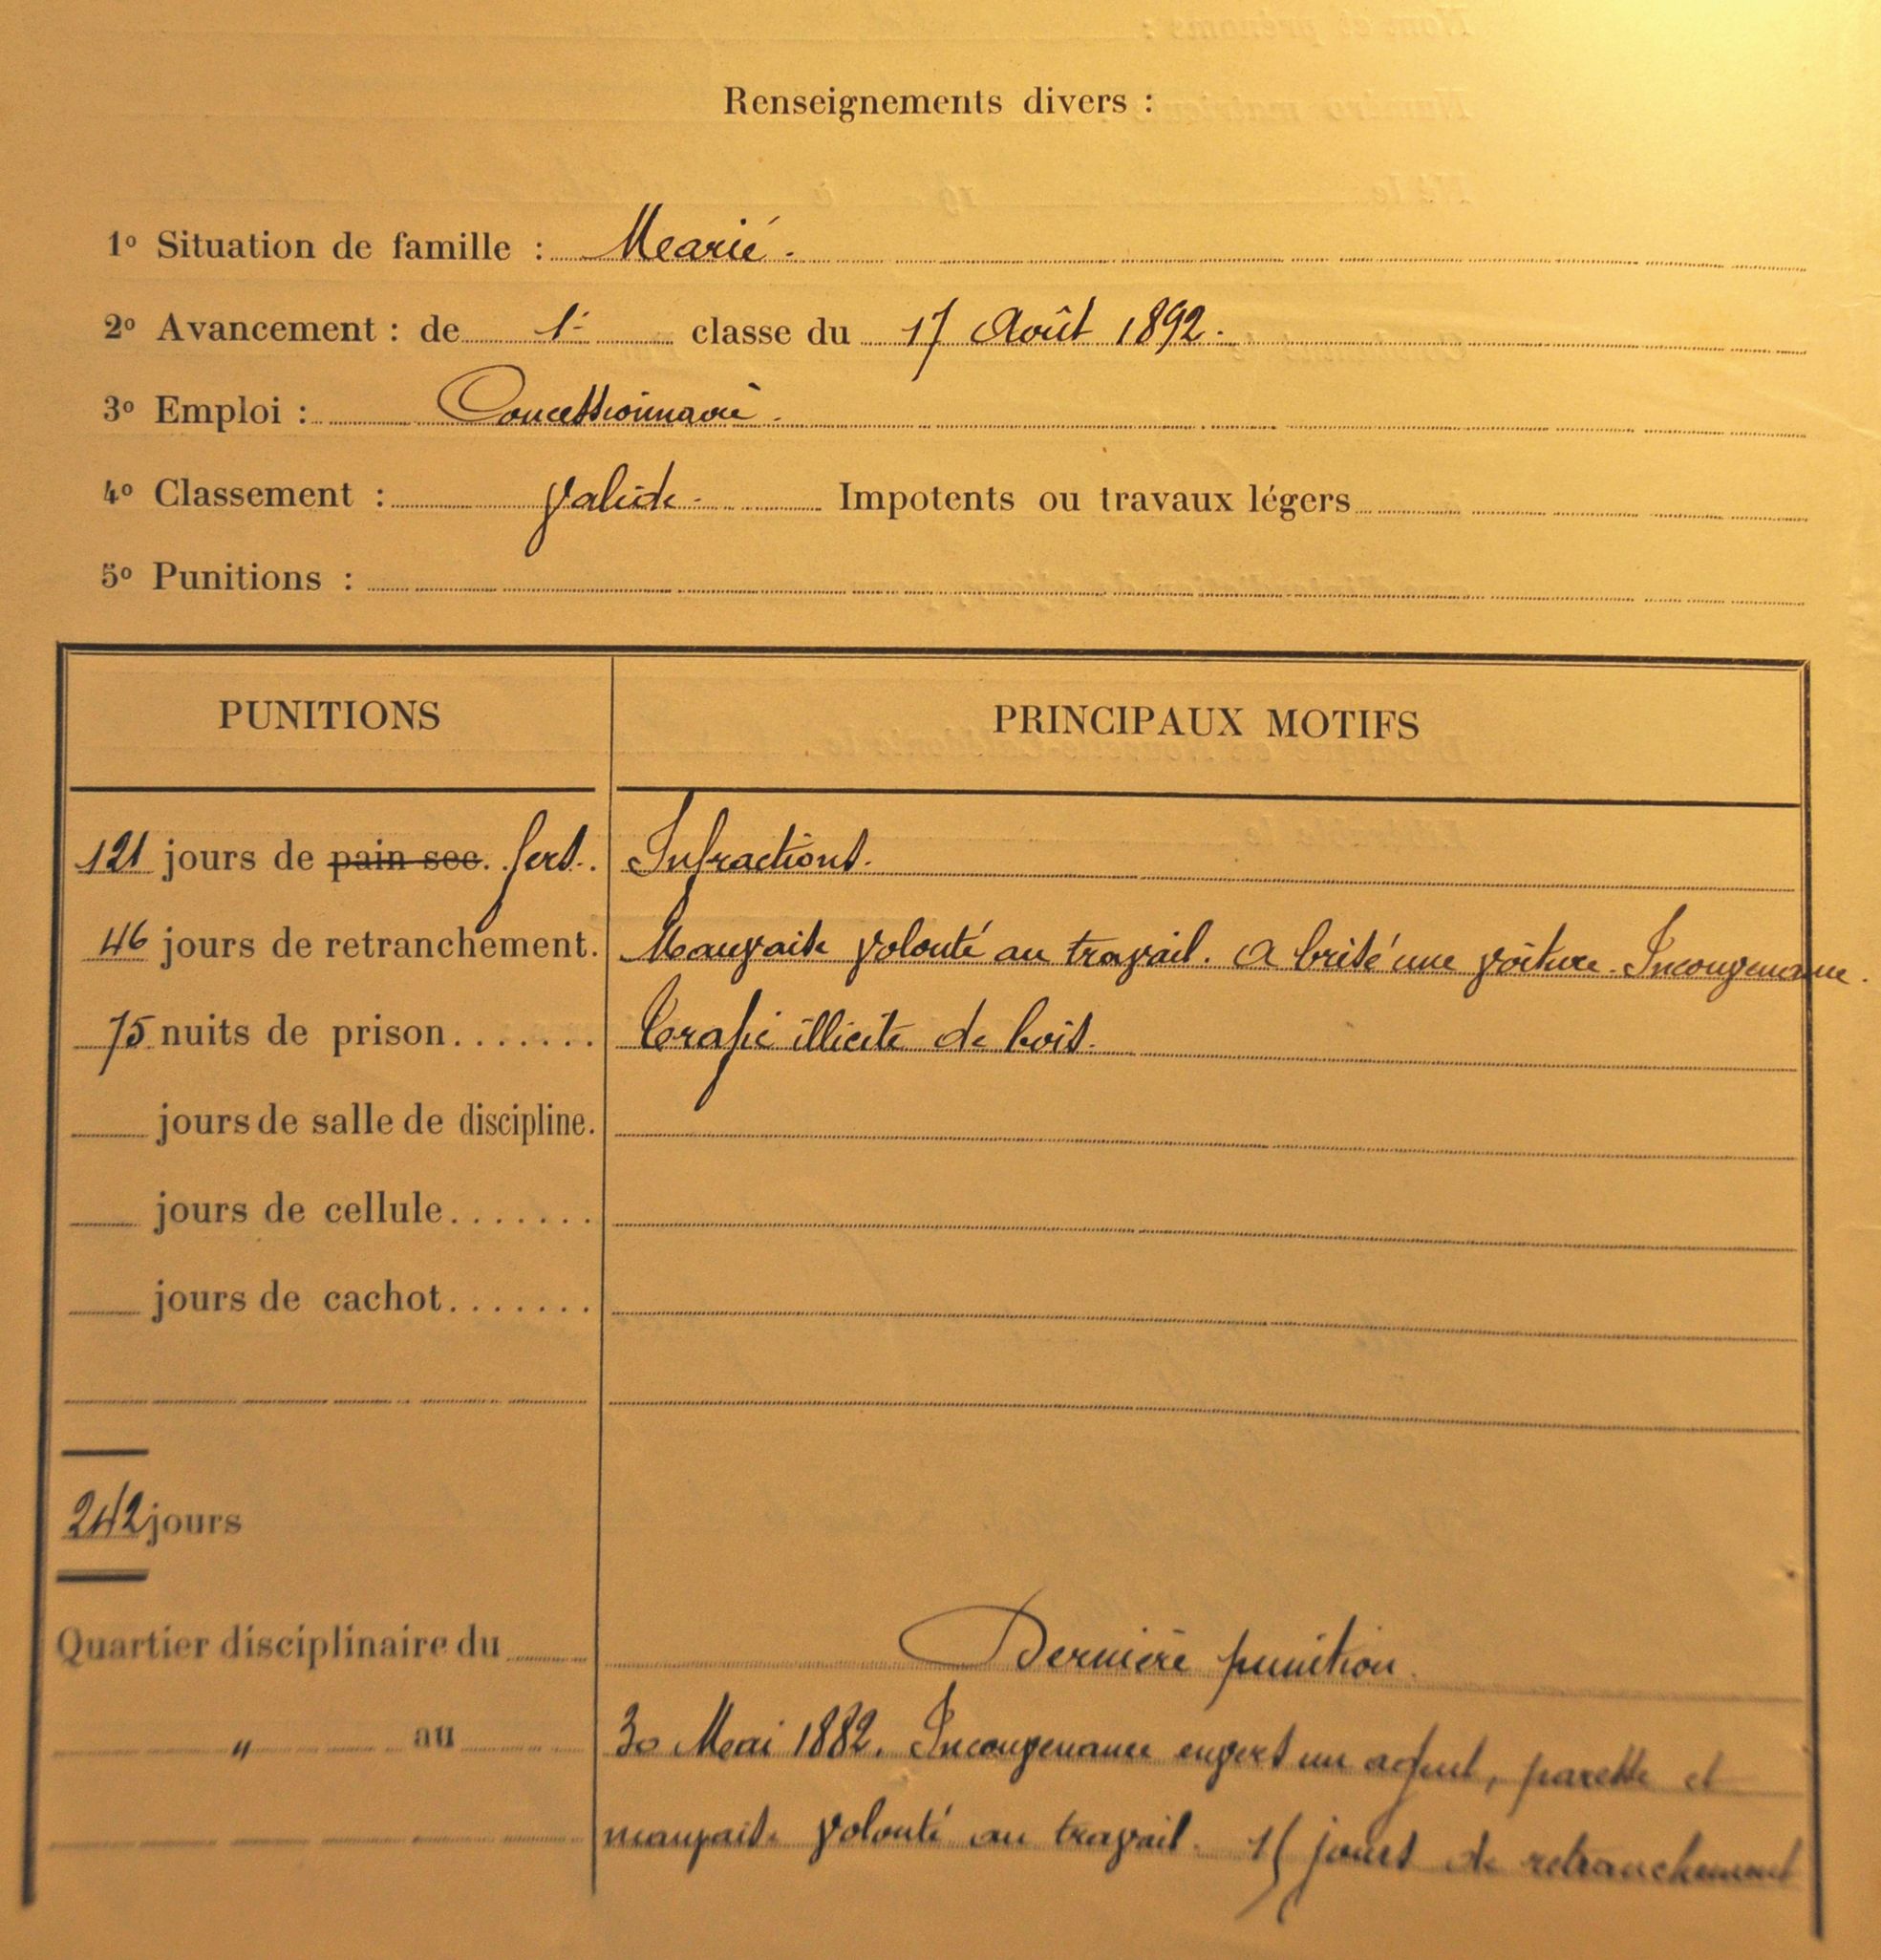 Renseignements divers :
1º Situation de famille : Marié.
2º Avancement : de 1e classe du 17 Août 1892.
3º Emploi : Concessionnaire.
4º Classement : Valide. Impotents ou travaux légers
5º Punitions :
PUNITIONS PRINCIPAUX MOTIFS
121 jours de pain sec. fers. Infractions.
46 jours de retranchement. Mauvaise volonté au travail. A brisé une voiture. Inconvenance.
75 nuits de prison....... Trafic illicite de bois.
jours de salle de discipline.
jours de cellule.......
jours de cachot.......
242 jours
Quartier disciplinaire du Dernière punition.
" au 30 Mai 1882. Inconvenance envers un agent, paresse et
mauvaise volonté au travail. 15 jours de retranchement